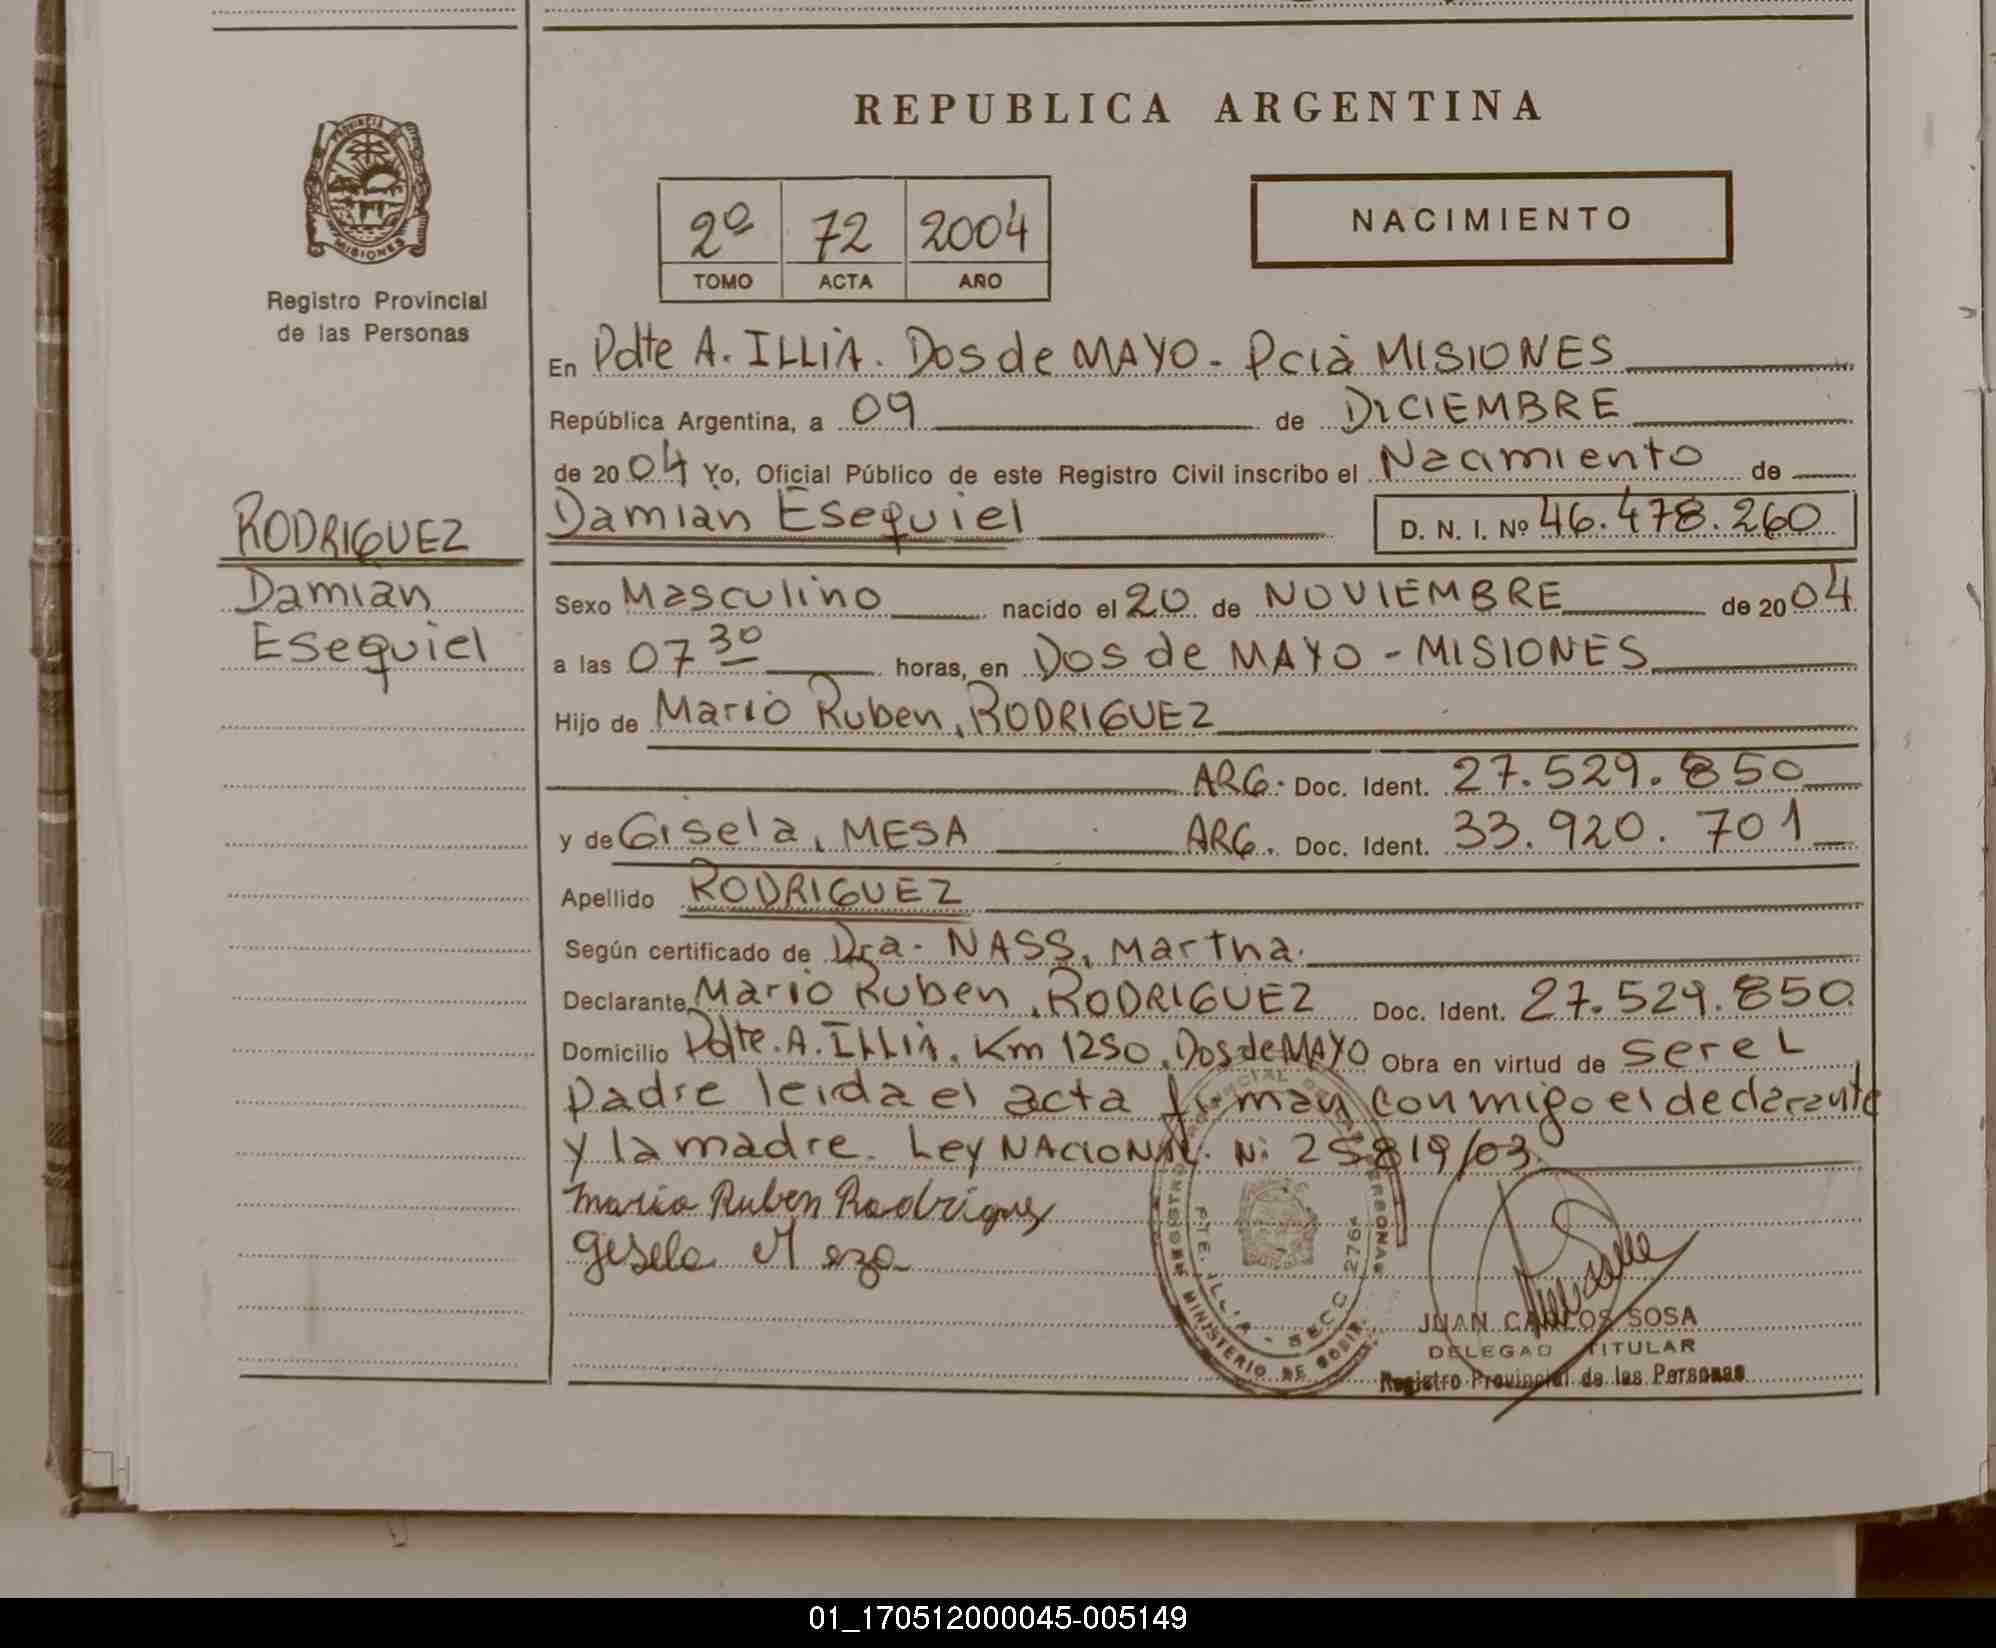 REPUBLICA ARGENTINA
2º 72 2004
TOMO ACTA AÑO
NACIMIENTO
PROVINCIA DE
MISIONES
Registro Provincial
de las Personas
RODRIGUEZ
Damián
Esequiel
En Pdte A. ILLIA. Dos de MAYO - Pcia MISIONES
República Argentina, a 09 de DICIEMBRE
de 2004 Yo, Oficial Público de este Registro Civil inscribo el Nacimiento de
Damián Esequiel D. N. I. Nº 46.478.260
Sexo Masculino nacido el 20 de NOVIEMBRE de 2004
a las 07 30 horas, en Dos de MAYO - MISIONES
Hijo de Mario Ruben, RODRIGUEZ
ARG. Doc. Ident. 27.529.850
y de Gisela, MESA ARG. Doc. Ident. 33.920.701
Apellido RODRIGUEZ
Según certificado de Dra. NASS, Martha.
Declarante Mario Ruben, RODRIGUEZ Doc. Ident. 27.529.850
Domicilio Pdte. A. ILLIA. Km 1250, Dos de MAYO Obra en virtud de ser el
padre leida el acta firman conmigo el declarante
y la madre. Ley NACIONAL. N: 25819/03
Mario Ruben Rodrigues
gisela Meza
PTE. ILLIA - SECC. 2765
MINISTERIO DE GOBIR.
JUAN CARLOS SOSA
DELEGADO TITULAR
Registro Provincial de las Personas
01_170512000045-005149